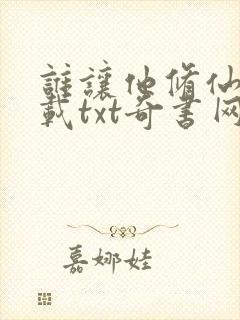 誰讓他脩仙
載txt奇書网
嘉娜娃